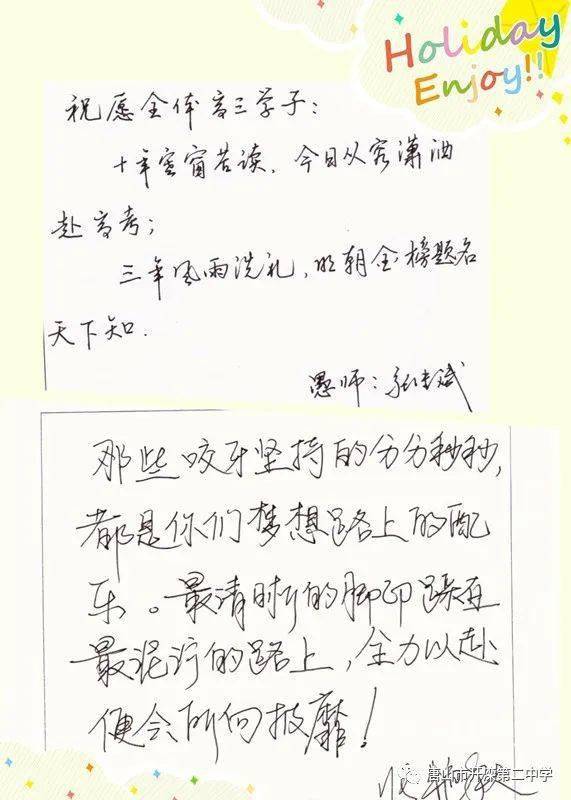 Holiday
Enjoy!!
祝愿全体高三学子：
十年寒窗苦读，今日从容潇洒
赴高考；
三年风雨洗礼，明朝金榜题名
天下知．
愚师：张
那些咬牙坚持的分分秒秒，
都是你们梦想路上的配
乐。最清晰的脚印踩在
最泥泞的路上，全力以赴
便会所向披靡！
唐山市开滦第二中学